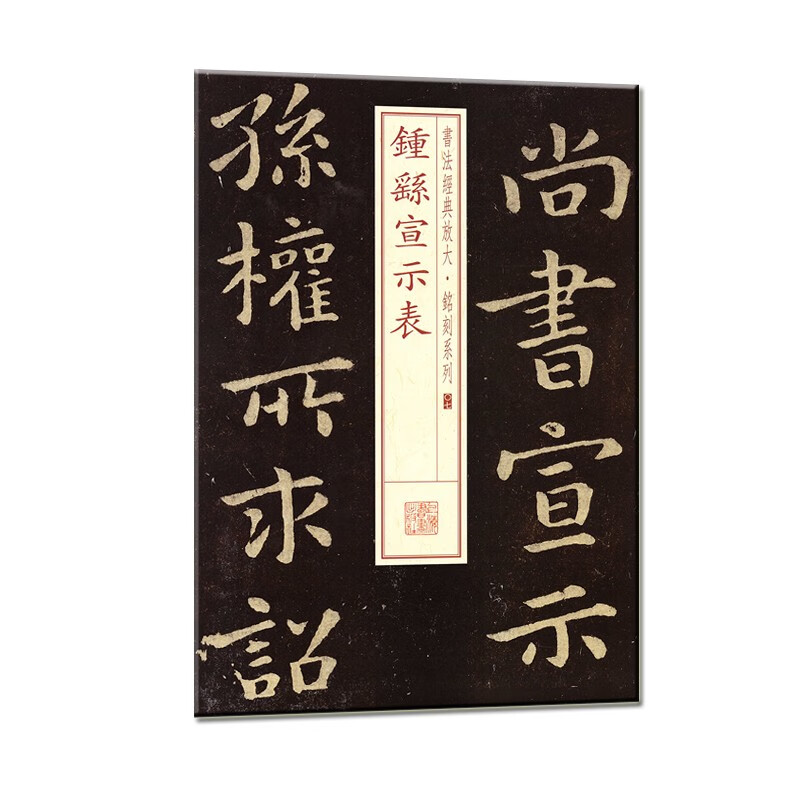 尚書宣示
孫權所求詔
書法經典放大·銘刻系列
〇七
鍾繇宣示表